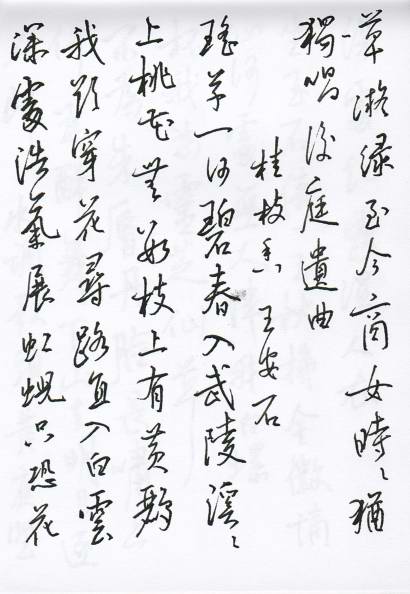 草凝緑至今商女時〻猶
獨唱後庭遺曲
桂枝香 王安石
瑤草一何碧春入武陵溪〻
上桃花無數枝上有黃鸝
我欲穿花尋路直入白雲
深處浩氣展虹蜺只恐花